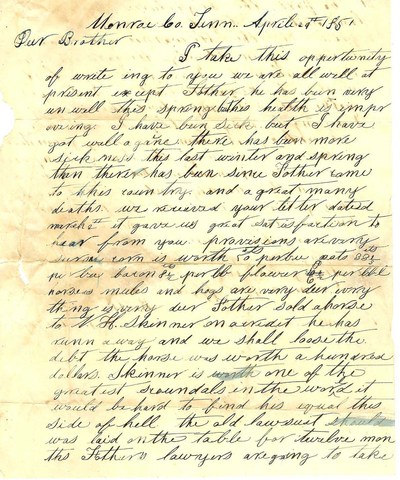 Monroe Co. Tenn. April 185
Dear Brother
I take this opportunity
of write ing to you we are all well at
present except Father he has bun very
un well this spring his health is empr
oveing I have bun sick but I have
got well agane there has bun more
sick ness this last winter and spring
than there has bun since Father came
to this country and a great many
deaths we receved your letter dated
march it gave us great sat is faction to
hear from you provisions are very
corn is worth per bu
per bu bacon per lb flower per bbl
horses mules and hogs are very deer every
thing is very der Father sold a horse
to Skinner on acredit he has
runn away and we shall loose the
debt the horse was worth a hundred
dollars. Skinner is worth one of the
greatest scoundals in the world it
would be hard to find his equal this
side of hell the old lawsuit should
was laid on the table for twelve mon
ths Fathers lawyers are going to take